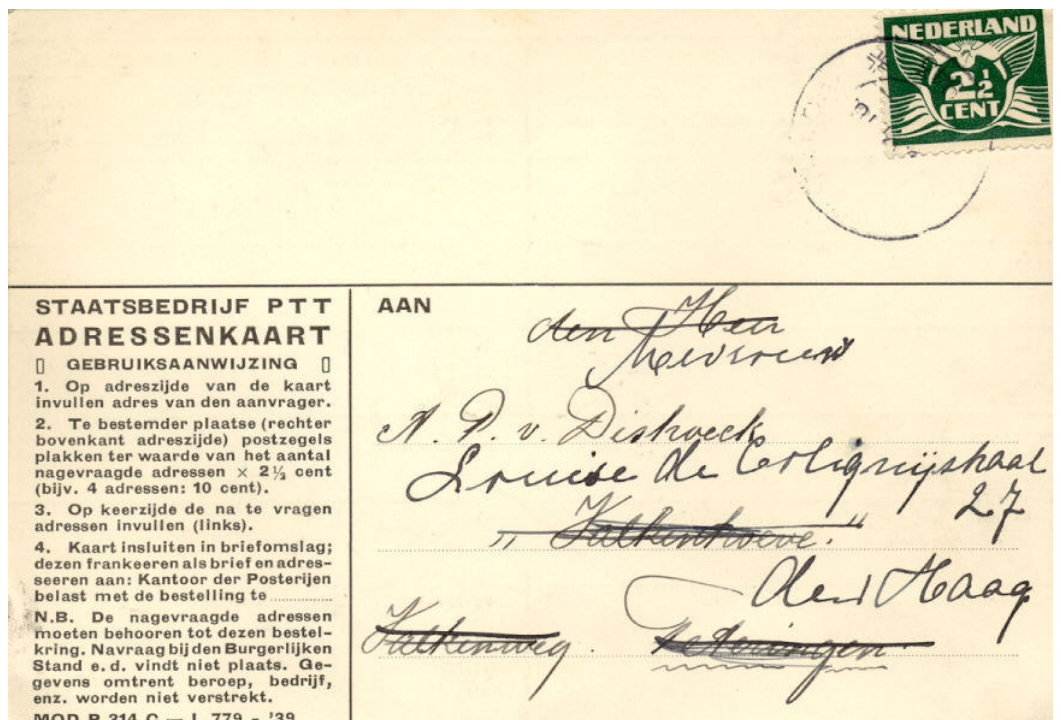 NEDERLAND
2½
CENT
STAATSBEDRIJF PTT
ADRESSENKAART
▯ GEBRUIKSAANWIJZING ▯
1. Op adreszijde van de kaart
invullen adres van den aanvrager.
2. Te bestemder plaatse (rechter
bovenkant adreszijde) postzegels
plakken ter waarde van het aantal
nagevraagde adressen × 2½ cent
(bijv. 4 adressen: 10 cent).
3. Op keerzijde de na te vragen
adressen invullen (links).
4. Kaart insluiten in briefomslag;
dezen frankeeren als brief en adres-
seeren aan: Kantoor der Posterijen
belast met de bestelling te ............
N.B. De nagevraagde adressen
moeten behooren tot dezen bestel-
kring. Navraag bij den Burgerlijken
Stand e. d. vindt niet plaats. Ge-
gevens omtrent beroep, bedrijf,
enz. worden niet verstrekt.
MOD P 314 C — L 779 - '39
AAN
den Heer
Mevrouw
A. P. v. Dishoeck
Louise de Colignystraat
27
" Valkenhoeve. "
den Haag
Valkenweg. Teteringen